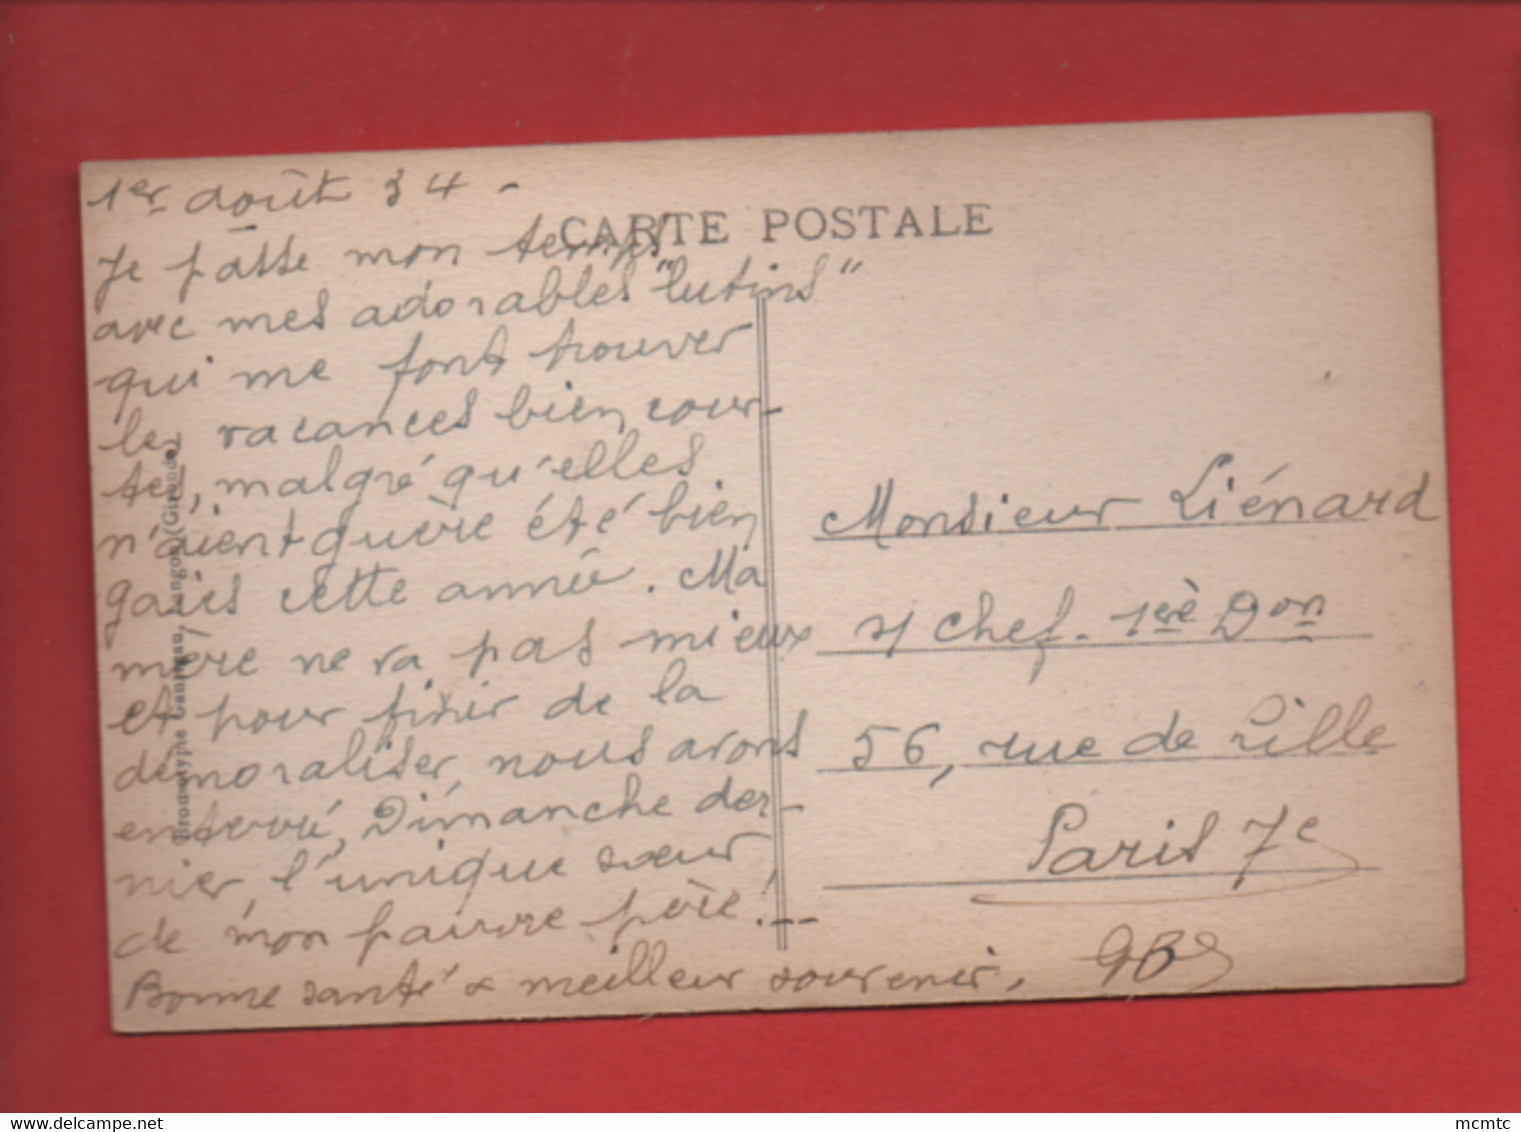 1er août 34 -
CARTE POSTALE
Je passe mon temps
avec mes adorables "lutins"
qui me font trouver
les vacances bien cour-
tes, malgré qu'elles
n'aient guère été bien
gaies cette année. Ma
mère ne va pas mieux
et pour finir de la
démoraliser, nous avons
enterré, Dimanche der-
nier, l'unique sœur,
de mon pauvre père! --
Bonne santé & meilleur souvenir.
Monsieur Liénard
s/ chef. 1ère Don
56, rue de Lille
Paris 7e
Bromotype Gautreau, Langon (Gironde)
mcmtc
delcampe.net